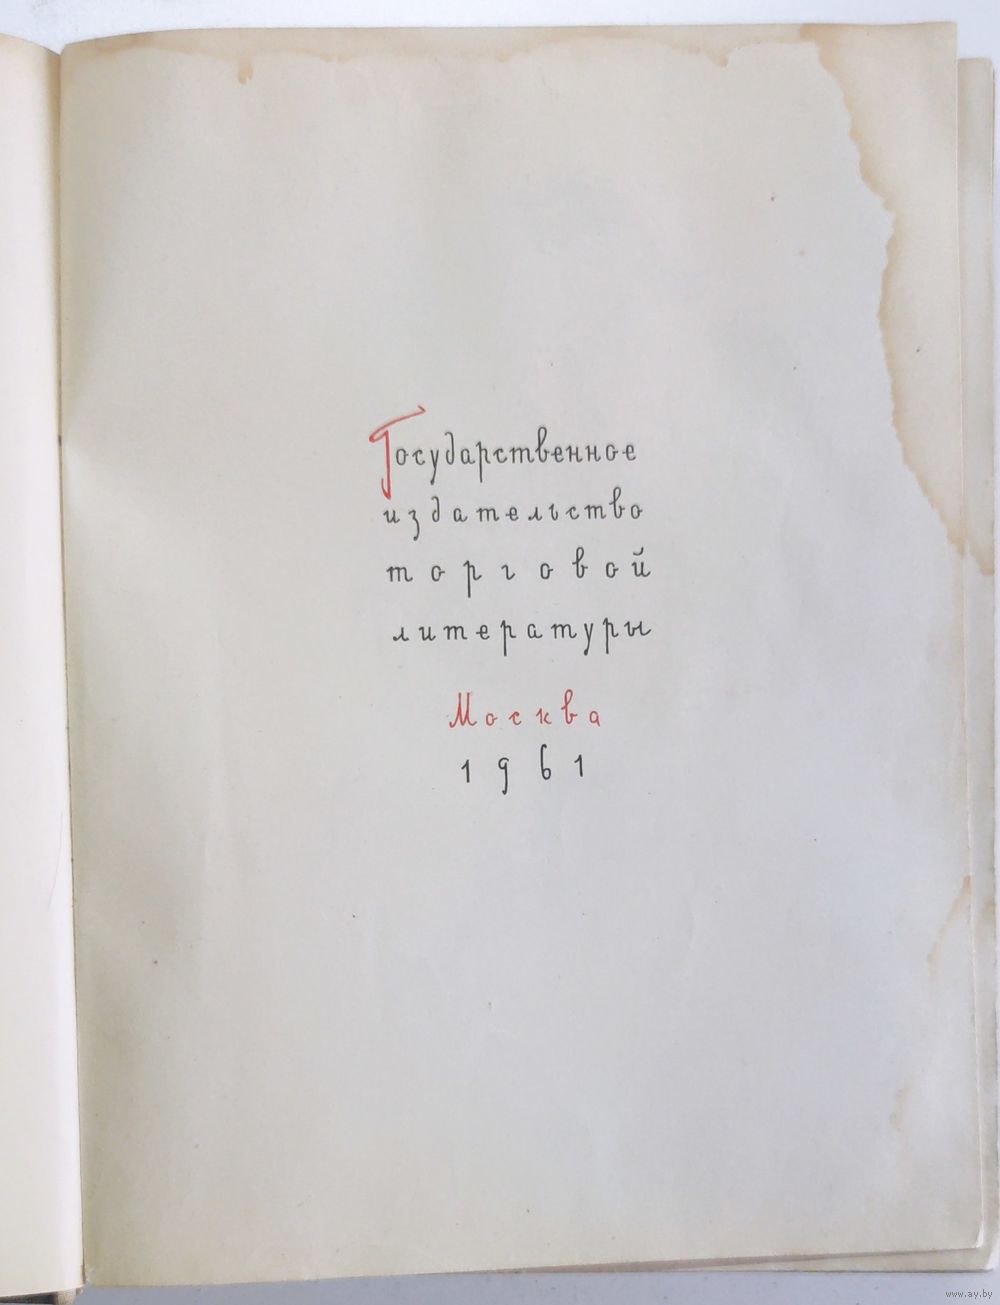 Государственное
издательство
торговой
литературы
Москва
1961
www.ay.by